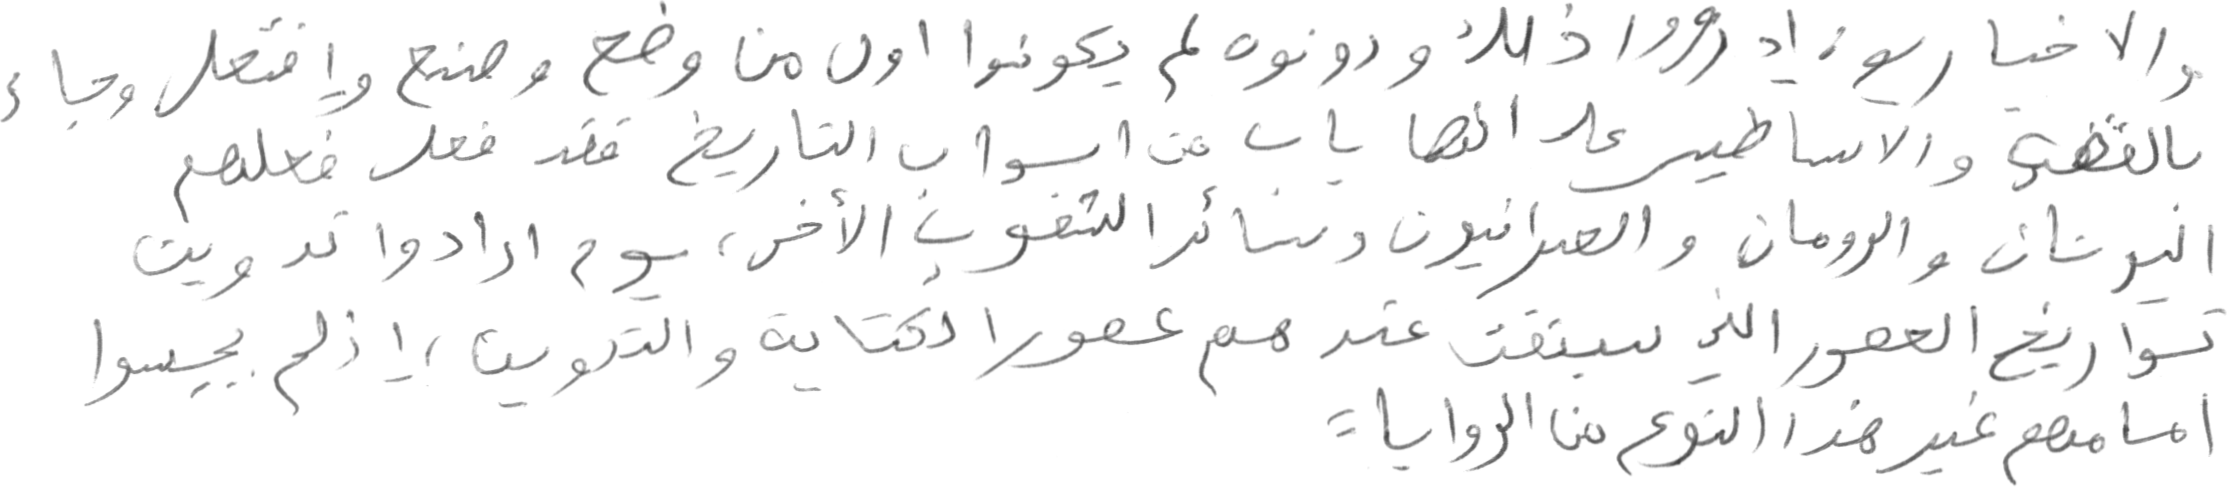 والاخباريون، إذ رووا ذلك ودونوه لم يكونوا اول من وضع وصنع وافتعل وجاء
بالقصص والاساطير على انها باب من ابواب التاريخ فقد فعل فعلهم
اليونان والرومان والعبرانيون وسائر الشعوب الأخر، يوم ارادوا تدوين
تواريخ العصور التي سبقت عندهم عصور الكتابة والتدوين، إذ لم يجسوا
امامهم غير هذا النوع من الروايات